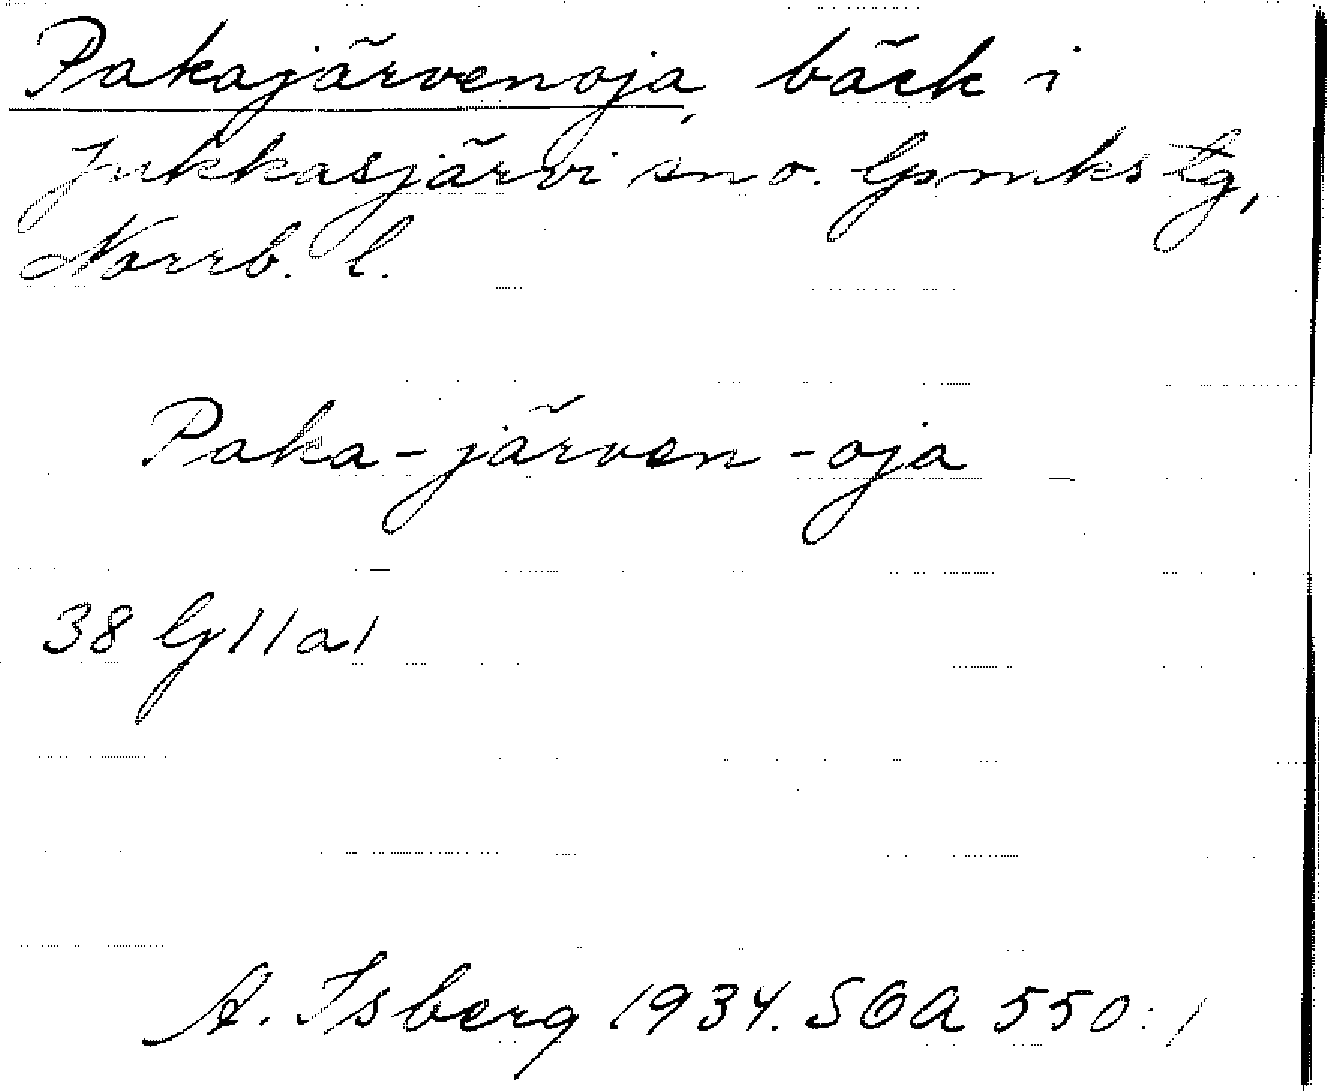 Pakajärvenoja, bäck i
Jukkasjärvi sn o. lpmks tg,
Norrb. l.
Paka-järven-oja
38 G 11a1
A. Isberg 1934. SOA 550:1